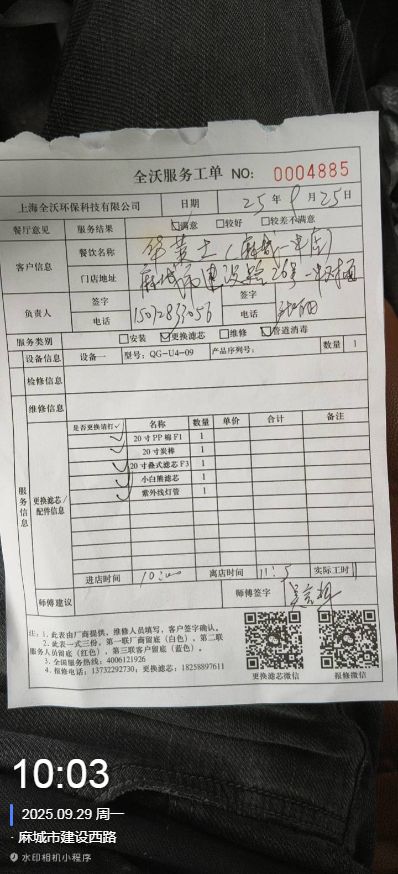 全沃服务工单 NO: 0004885
上海全沃环保科技有限公司 日期 25 年 9 月 25 日
餐厅意见 服务结果 ☑满意 □较好 □较差不满意
客户信息 餐饮名称 华莱士(麻城一中店)
门店地址 麻城市建设路26号一中对面
负责人 签字 签字
电话 电话
服务类别 □安装 ☑更换滤芯 □维修 ☑管道消毒
设备信息 设备一 型号: QG-U4-09 产品序列号: 数量 1
检修信息
维修信息
服务信息 更换滤芯/配件信息
是否更换请打✓ 名称 数量 单价 合计 备注
✓ 20寸PP棉F1 1
✓ 20寸炭棒 1
✓ 20寸叠式滤芯F3 1
✓ 小白熊滤芯 1
✓ 紫外线灯管 1
进店时间 10:00 离店时间 11:5 实际工时
师傅建议 师傅签字
注: 1. 此表由厂商提供、维修人员填写, 客户签字确认。
2. 此表一式三份。第一联厂商留底(白色)、第二联
服务人员留底(红色)、第三联客户留底(蓝色)。
3. 全国服务热线: 4006121926
4. 报修电话: 13732292730; 更换滤芯: 18258897611
更换滤芯微信 报修微信
10:03
2025.09.29 周一
· 麻城市建设西路
水印相机小程序